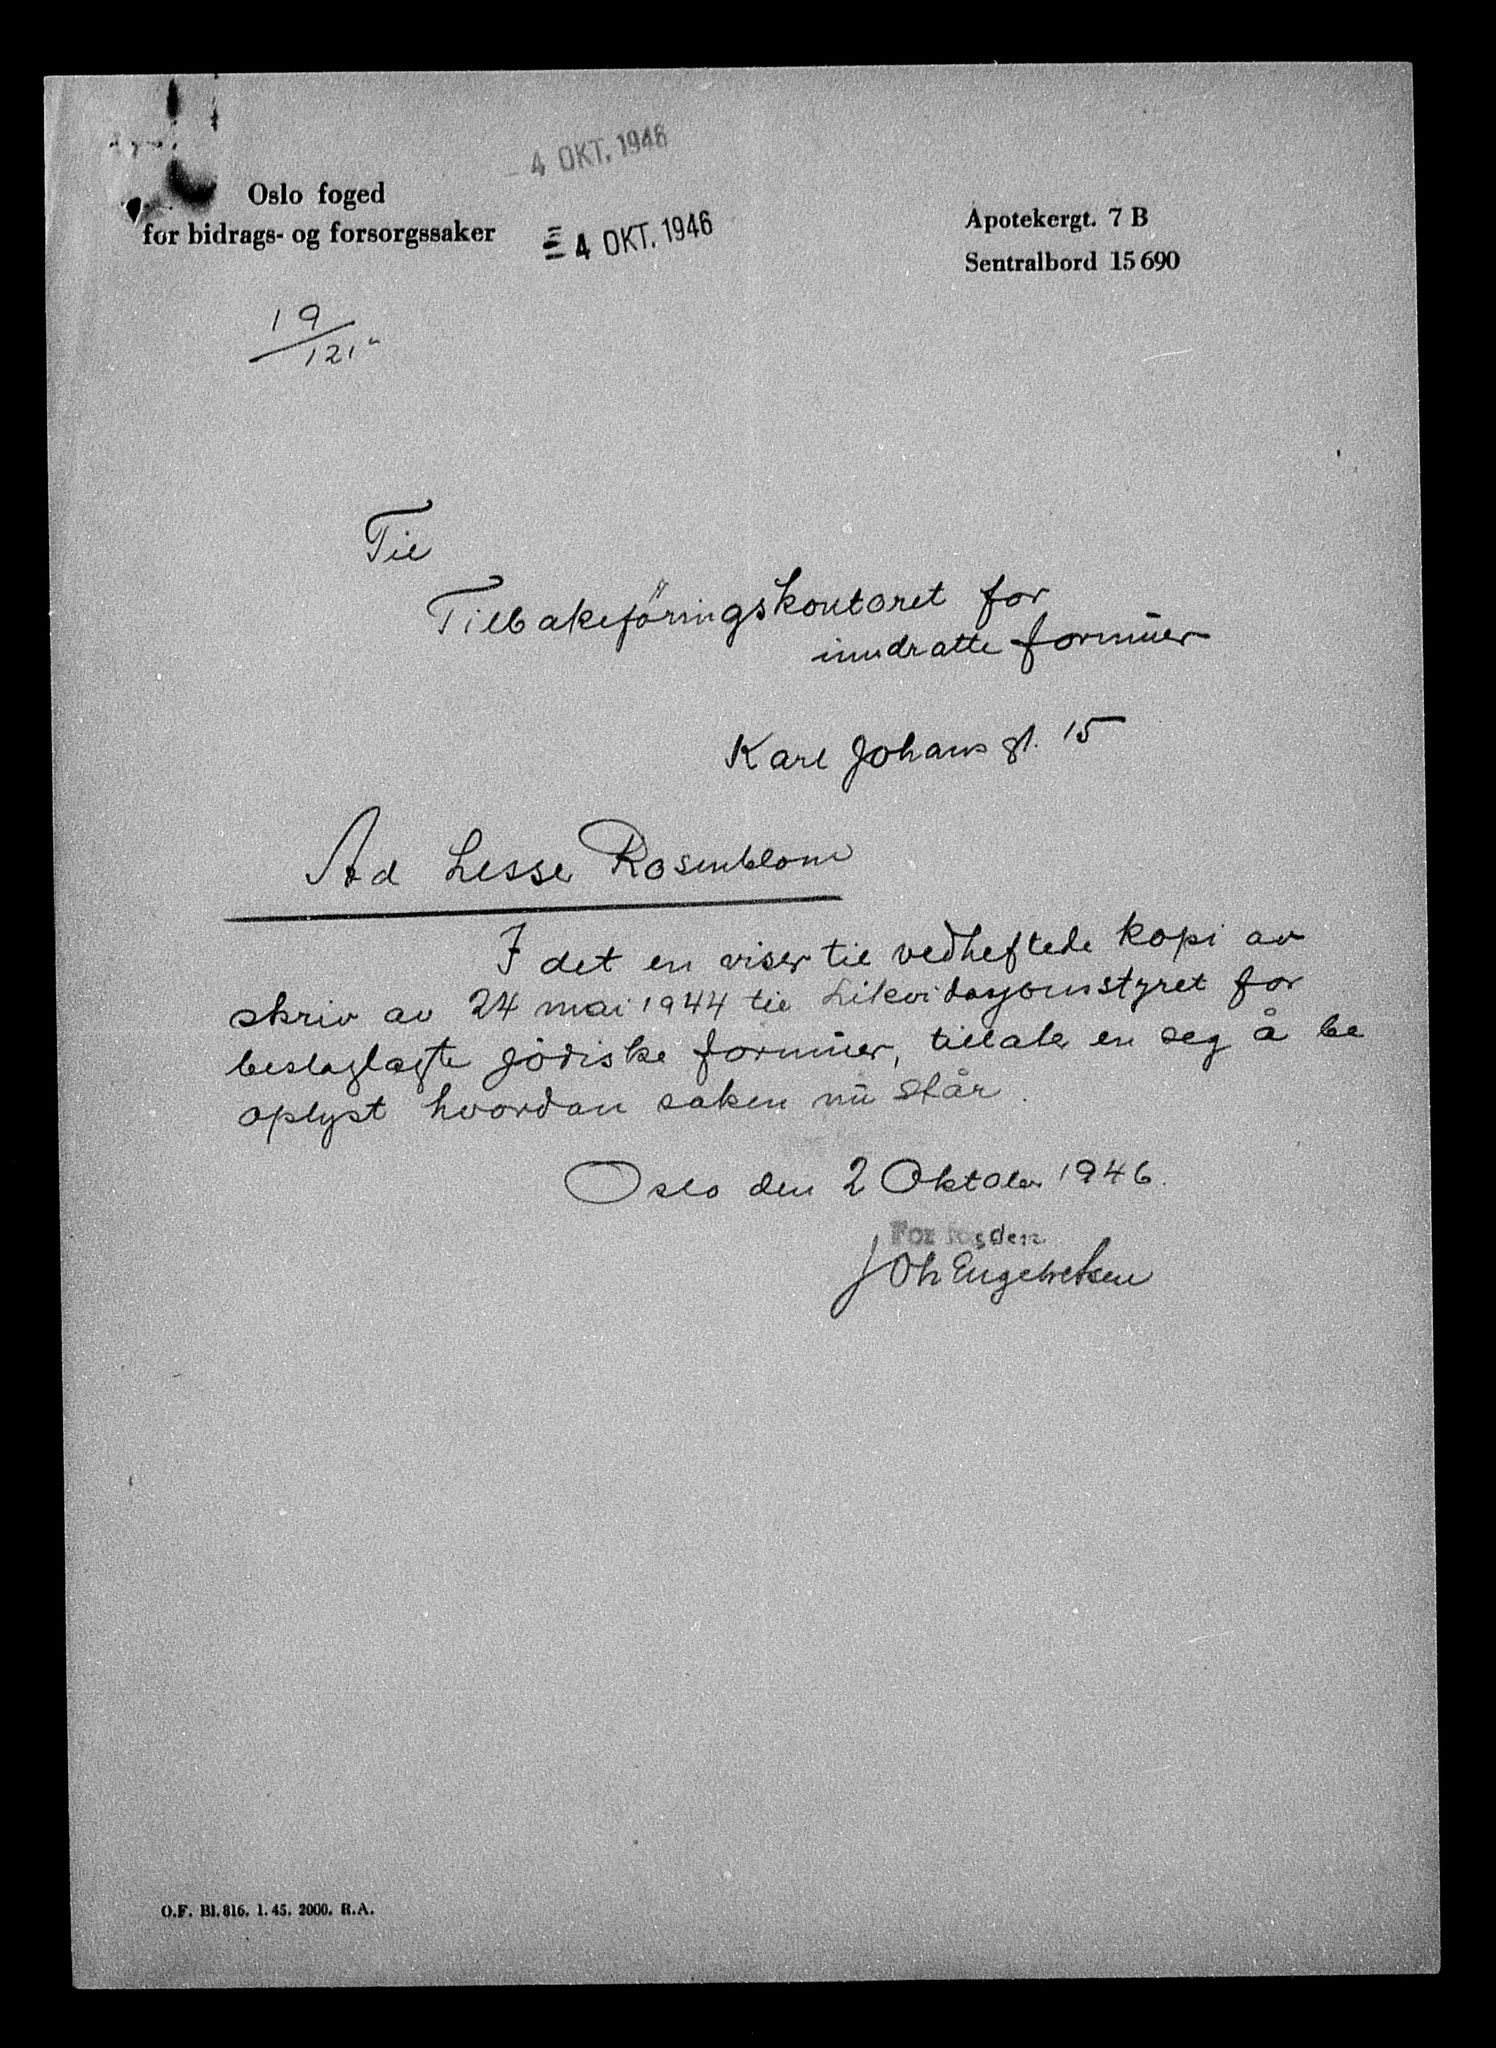 4 OKT. 1946
Oslo foged
for bidrags- og forsorgssaker
4 OKT. 1946
Apotekergt. 7 B
Sentralbord 15 690
19/121
Til
Tilbakeföringskontoret for
inndratte formuer
Karl Johans gt. 15
Ad Lesser Rosenblom
I det en viser til vedheftede kopi av
skriv av 24 mai 1944 til Likvidasjonsstyret for
beslaglagte jödiske formuer, tillater en seg å be
oplyst hvordan saken nu står.
Oslo den 2 Oktober 1946.
For fogden
Joh Engebretsen
O.F. Bl. 816. 1. 45. 2000. R.A.